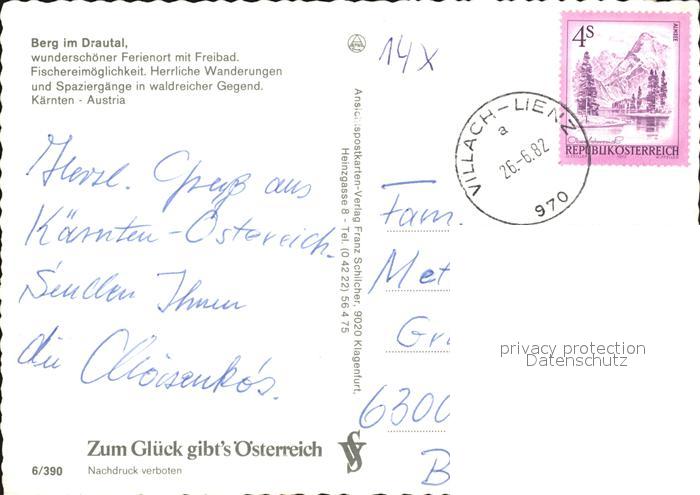 Berg im Drautal,
wunderschöner Ferienort mit Freibad.
Fischereimöglichkeit. Herrliche Wanderungen
und Spaziergänge in waldreicher Gegend.
Kärnten - Austria
14x
4S
ALMSEE
REPUBLIK ÖSTERREICH
VILLACH-LIENZ
a
26.-6.82
970
Herzl. Grüße aus
Kärnten-Österreich.
Senden Ihnen
die
Ansichtspostkarten-Verlag Franz Schilcher, 9020 Klagenfurt,
Heinzgasse 8 - Tel. (0 42 22) 56 4 75
Fam.
Met
Gr
6300
B
privacy protection
Datenschutz
Zum Glück gibt's Österreich
6/390
Nachdruck verboten